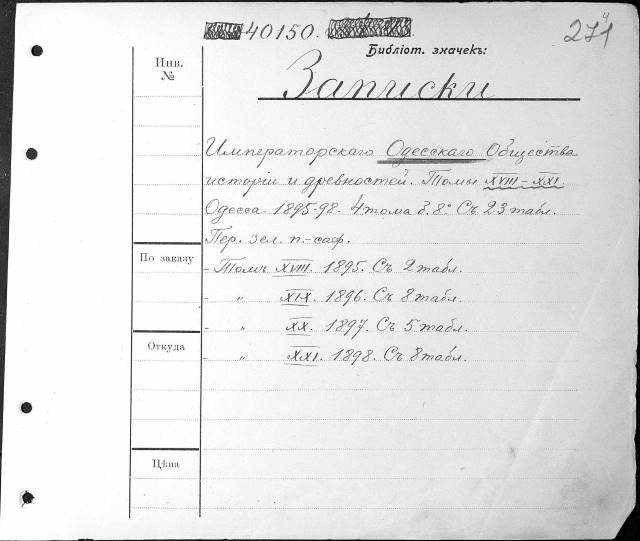 40150.
271
4
Библіот. значекъ:
Инв.
№
Записки
Императорскаго Одесскаго Общества
исторіи и древностей. Томы XVIII–XXI
Одесса. 1895-98. 4 тома б. 8° Съ 23 табл.
Пер. зел. п.-саф.
По заказу
- Томъ XVIII. 1895. Съ 2 табл.
- „ XIX. 1896. Съ 8 табл.
- „ XX. 1897. Съ 5 табл.
Откуда
- „ XXI. 1898. Съ 8 табл.
Цѣна